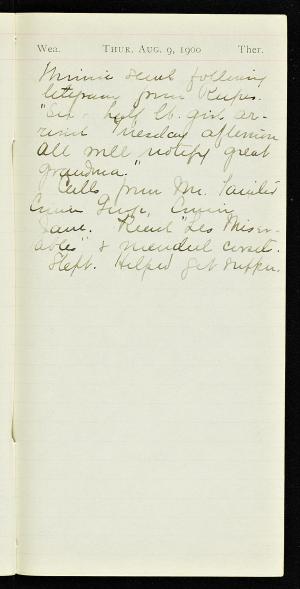 Wea. THUR, AUG. 9, 1900 Ther.
Minnie sends following
telegram from Rufus.
"Six & half lb. girl ar-
rived Tuesday afternoon
All well, notify great
grandma."
Calls from Mr.
Jane. Read "Les Miser-
ables" & mended corset.
Slept. Helped get supper.